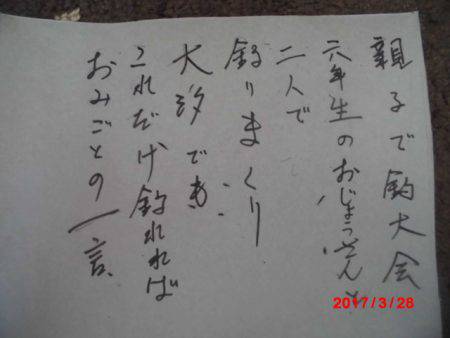 親子で釣大会
六年生のおじょうさんと
二人で
釣りまくり
大漁でも
これだけ釣れれば
おみごとの一言、
2017/3/28